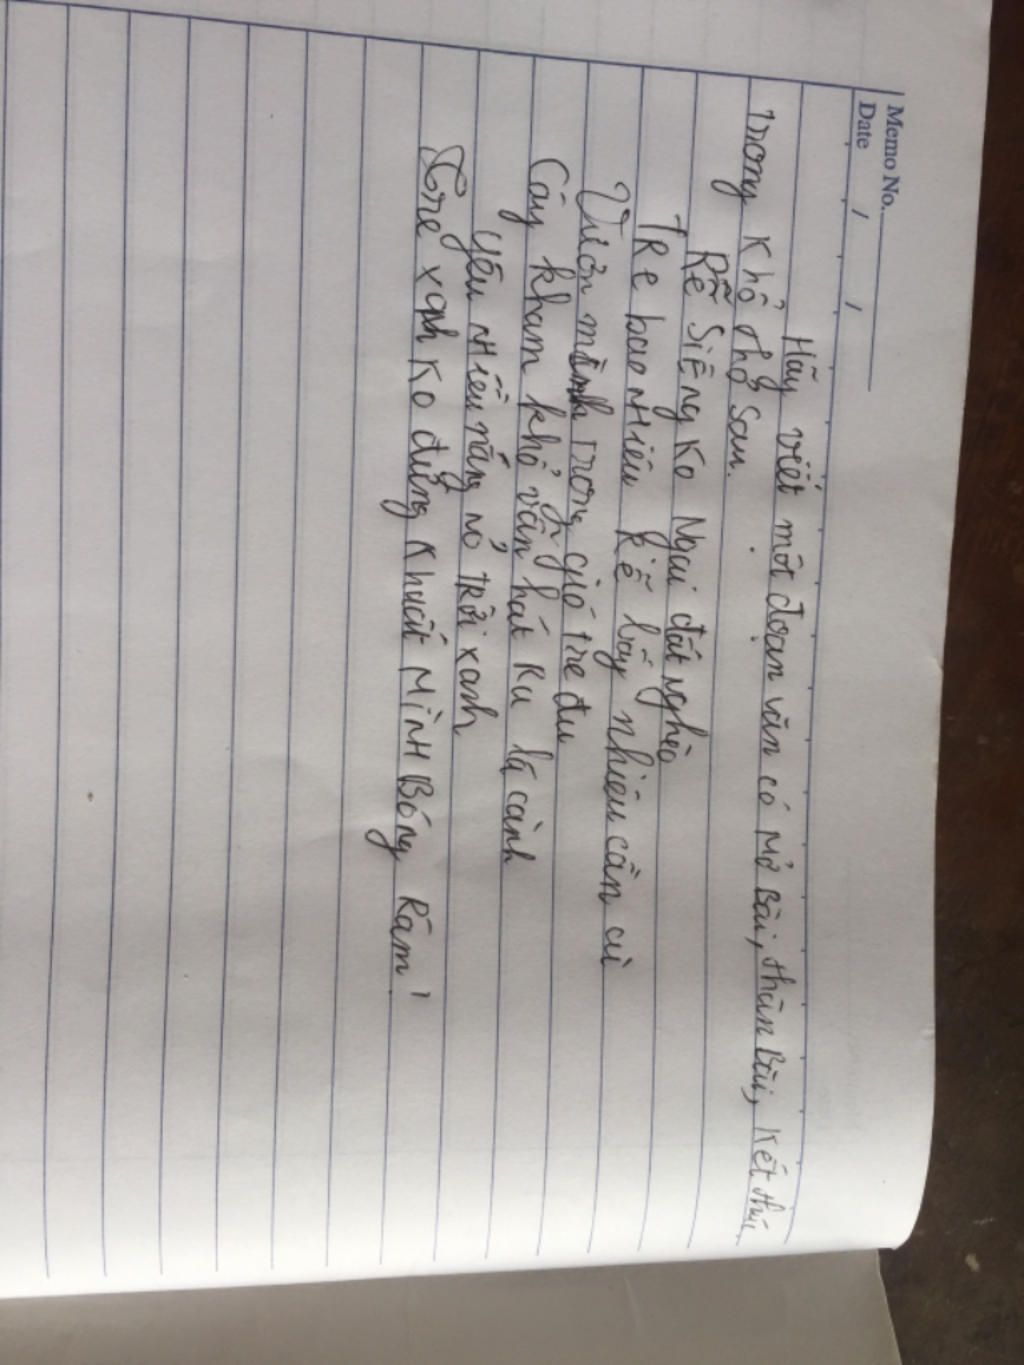 Memo No.
Date / /
Hãy viết một đoạn văn có Mở Bài, thân Bài, Kết thúc
Trong khổ thơ sau.
Rễ Siêng Ko Ngại đất nghèo
TRe bao Nhiêu Rễ bấy nhiêu cần cù
Vươn mình Trong gió tre đu
Cây kham khổ vẫn hát Ru lá cành
Yêu Nhiều nắng nỏ TRời xanh
Tre xanh Ko đứng Khuất MìNH BóNg Râm!